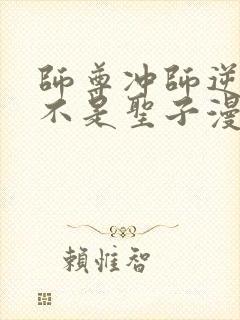 師尊冲師逆
不是聖子漫
賴惟智